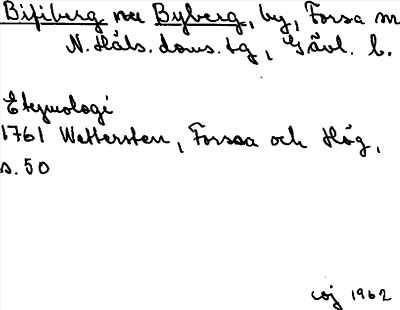 Bisiberg nu Byberg, by, Forsa sn
N. Häls. doms. tg, Gävl. l.
Etymologi
1761 Wettersten, Forssa och Hög,
s. 50
1962